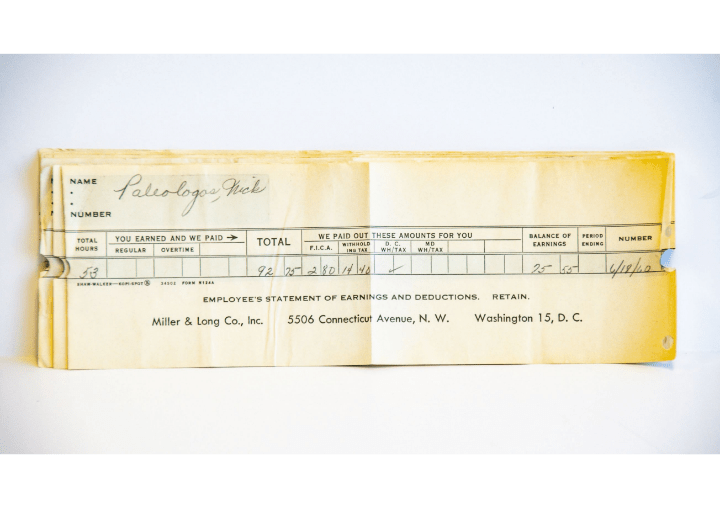 NAME Paleologos, Nick
NUMBER
TOTAL HOURS YOU EARNED AND WE PAID → TOTAL WE PAID OUT THESE AMOUNTS FOR YOU BALANCE OF EARNINGS PERIOD ENDING NUMBER
REGULAR OVERTIME F.I.C.A. WITHHOLDING TAX D. C. WH/TAX MD WH/TAX
53 92 75 2 80 14 40 ✓ 75 55 6/18/60
SHAW-WALKER—KOPI-SPOT 24503 FORM 8124A
EMPLOYEE'S STATEMENT OF EARNINGS AND DEDUCTIONS. RETAIN.
Miller & Long Co., Inc. 5506 Connecticut Avenue, N. W. Washington 15, D. C.